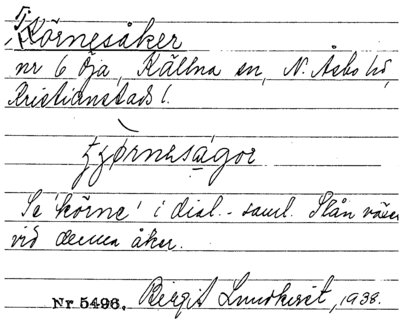 Körnesåker
nr 6 Öja, Källna sn, N. Åsbo hd,
Kristianstads l.
Se 'körne' i dial.-saml. Slån växer
vid denna åker.
Nr 5496. Birgit Lundkvist, 1938.